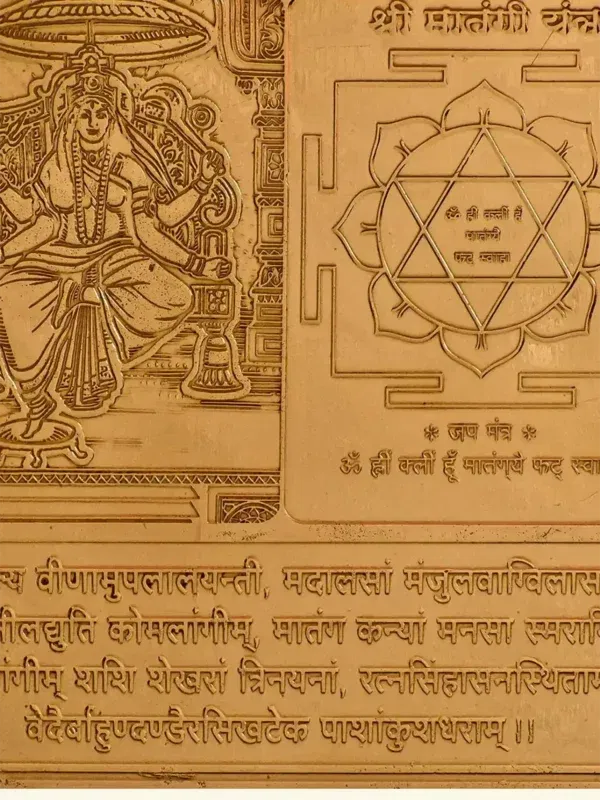 श्री मातंगी यंत्र
ॐ ह्रीं क्लीं हूँ
मातंग्यै
फट् स्वाहा
* जप मंत्र *
ॐ ह्रीं क्लीं हूँ मातंग्यै फट् स्वा
वीणामृपलालयन्ती, मदालसां मंजुलवाग्विलास
नीलद्युति कोमलांगीम्, मातंग कन्यां मनसा स्मरामि
शशि शेखरां त्रिनयनां, रत्नसिंहासनस्थिताम्
वेदैर्बाहुण्दण्डैरसिखटेक पाशांकुशधराम् ।।